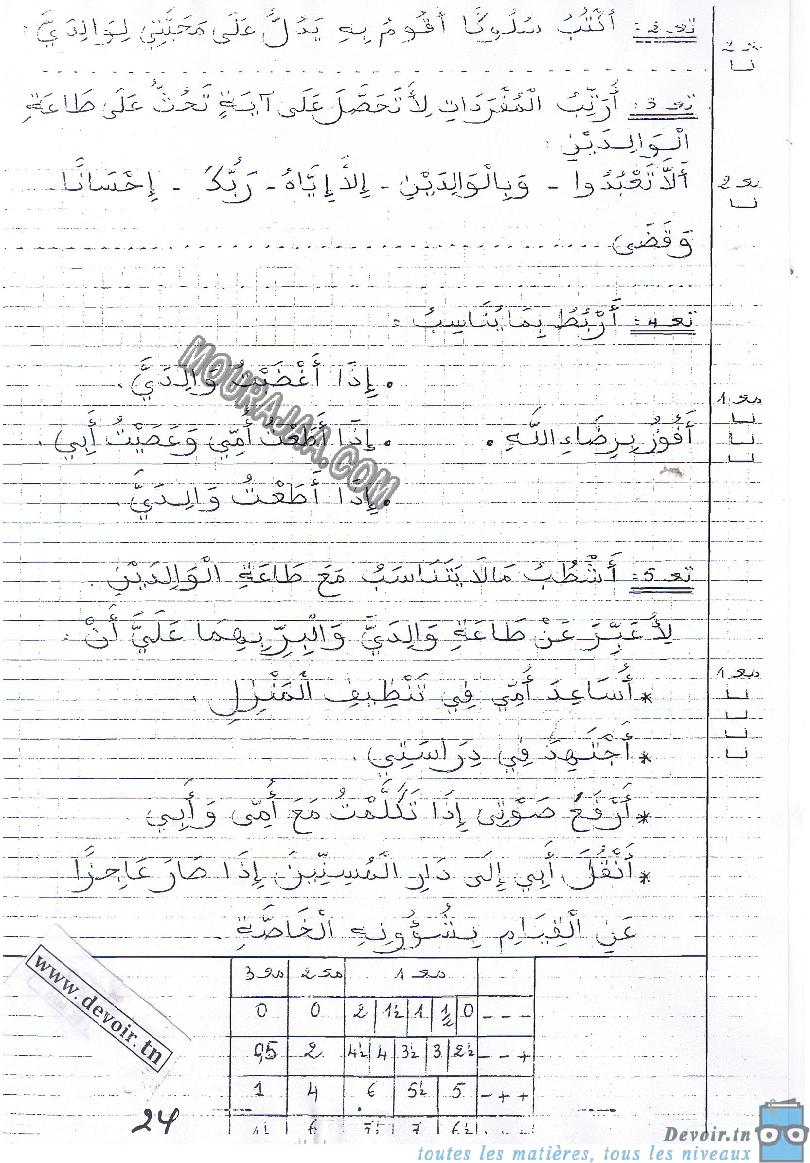 تعـ2: أَكْتُبُ سُلُوكًا أَقُومُ بِهِ يَدُلُّ عَلَى مَحَبَّتِي لِوَالِدِيَّ:
تعـ3: أُرَتِّبُ الْمُفْرَدَاتِ لِأَتَحَصَّلَ عَلَى آيَةٍ تَحُثُّ عَلَى طَاعَةِ
الْوَالِدَيْنِ:
معـ2
أَلَّا تَعْبُدُوا - وَبِالْوَالِدَيْنِ - إِلاَّ إِيَّاهُ - رَبُّكَ - إِحْسَانًا
وَقَضَى
تعـ4: أَرْبُطُ بِمَا يُنَاسِبُ:
• إِذَا أَغْضَبْتُ وَالِدَيَّ.
معـ1
أَفُوزُ بِرِضَاءِ اللَّهِ • • إِذَا أَطَعْتُ أُمِّي وَعَصَيْتُ أَبِي.
• إِذَا أَطَعْتُ وَالِدَيَّ.
MOURAJAA.COM
تعـ5: أَشْطُبُ مَا لَا يَتَنَاسَبُ مَعَ طَاعَةِ الْوَالِدَيْنِ.
لِأُعَبِّرَ عَنْ طَاعَةِ وَالِدَيَّ وَالْبِرِّ بِهِمَا عَلَيَّ أَنْ:
معـ1
* أُسَاعِدَ أُمِّي فِي تَنْظِيفِ الْمَنْزِلِ.
* أَجْتَهِدَ فِي دِرَاسَتِي.
* أَرْفَعُ صَوْتِي إِذَا تَكَلَّمْتُ مَعَ أُمِّي وَأَبِي
* أَنْقُلَ أَبِي إِلَى دَارِ الْمُسِنِّينَ إِذَا صَارَ عَاجِزًا
عَنِ الْقِيَامِ بِشُؤُونِهِ الْخَاصَّةِ.
معـ3 معـ2 معـ1
0 0 2 1½ 1 ½ 0 - - -
0,5 2 4½ 4 3½ 3 2½ - - +
1 4 6 5½ 5 - + +
1½ 6 7½ 7 6½
www.devoir.tn
24
Devoir.tn
toutes les matières, tous les niveaux